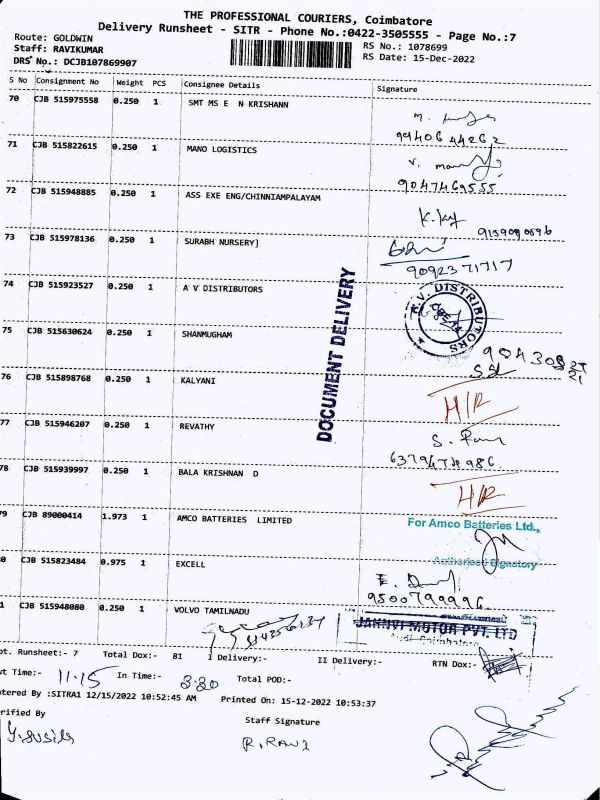 THE PROFESSIONAL COURIERS, Coimbatore
Delivery Runsheet - SITR - Phone No.:0422-3505555 - Page No.:7
Route: GOLDWIN
Staff: RAVIKUMAR
DRS No.: DCJB107869907
RS No.: 1078699
RS Date: 15-Dec-2022
S No Consignment No Weight PCS Consignee Details Signature
70 CJB 515975558 0.250 1 SMT MS E N KRISHANN
99406 44262
71 CJB 515822615 0.250 1 MANO LOGISTICS
9047469555
72 CJB 515948885 0.250 1 ASS EXE ENG/CHINNIAMPALAYAM
73 CJB 515978136 0.250 1 SURABH NURSERY]
9092371717
74 CJB 515923527 0.250 1 A V DISTRIBUTORS
A.V. DISTRIBUTORS
DOCUMENT DELIVERY
75 CJB 515630624 0.250 1 SHANMUGHAM
76 CJB 515898768 0.250 1 KALYANI
H/R
77 CJB 515946207 0.250 1 REVATHY
78 CJB 515939997 0.250 1 BALA KRISHNAN D
H/R
79 CJB 89000414 1.973 1 AMCO BATTERIES LIMITED
For Amco Batteries Ltd.,
Authorised Signatory
0 CJB 515823484 0.975 1 EXCELL
9500799996
1 CJB 515948080 0.250 1 VOLVO TAMILNADU
JAHNVI MOTOR PVT. LTD
Audi Coimbatore
ot. Runsheet:- 7 Total Dox:- 81 I Delivery:- II Delivery:- RTN Dox:-
ut Time:- 11.15 In Time:- 3.30 Total POD:-
tered By :SITRA1 12/15/2022 10:52:45 AM Printed On: 15-12-2022 10:53:37
rified By Staff Signature
R.RAVI